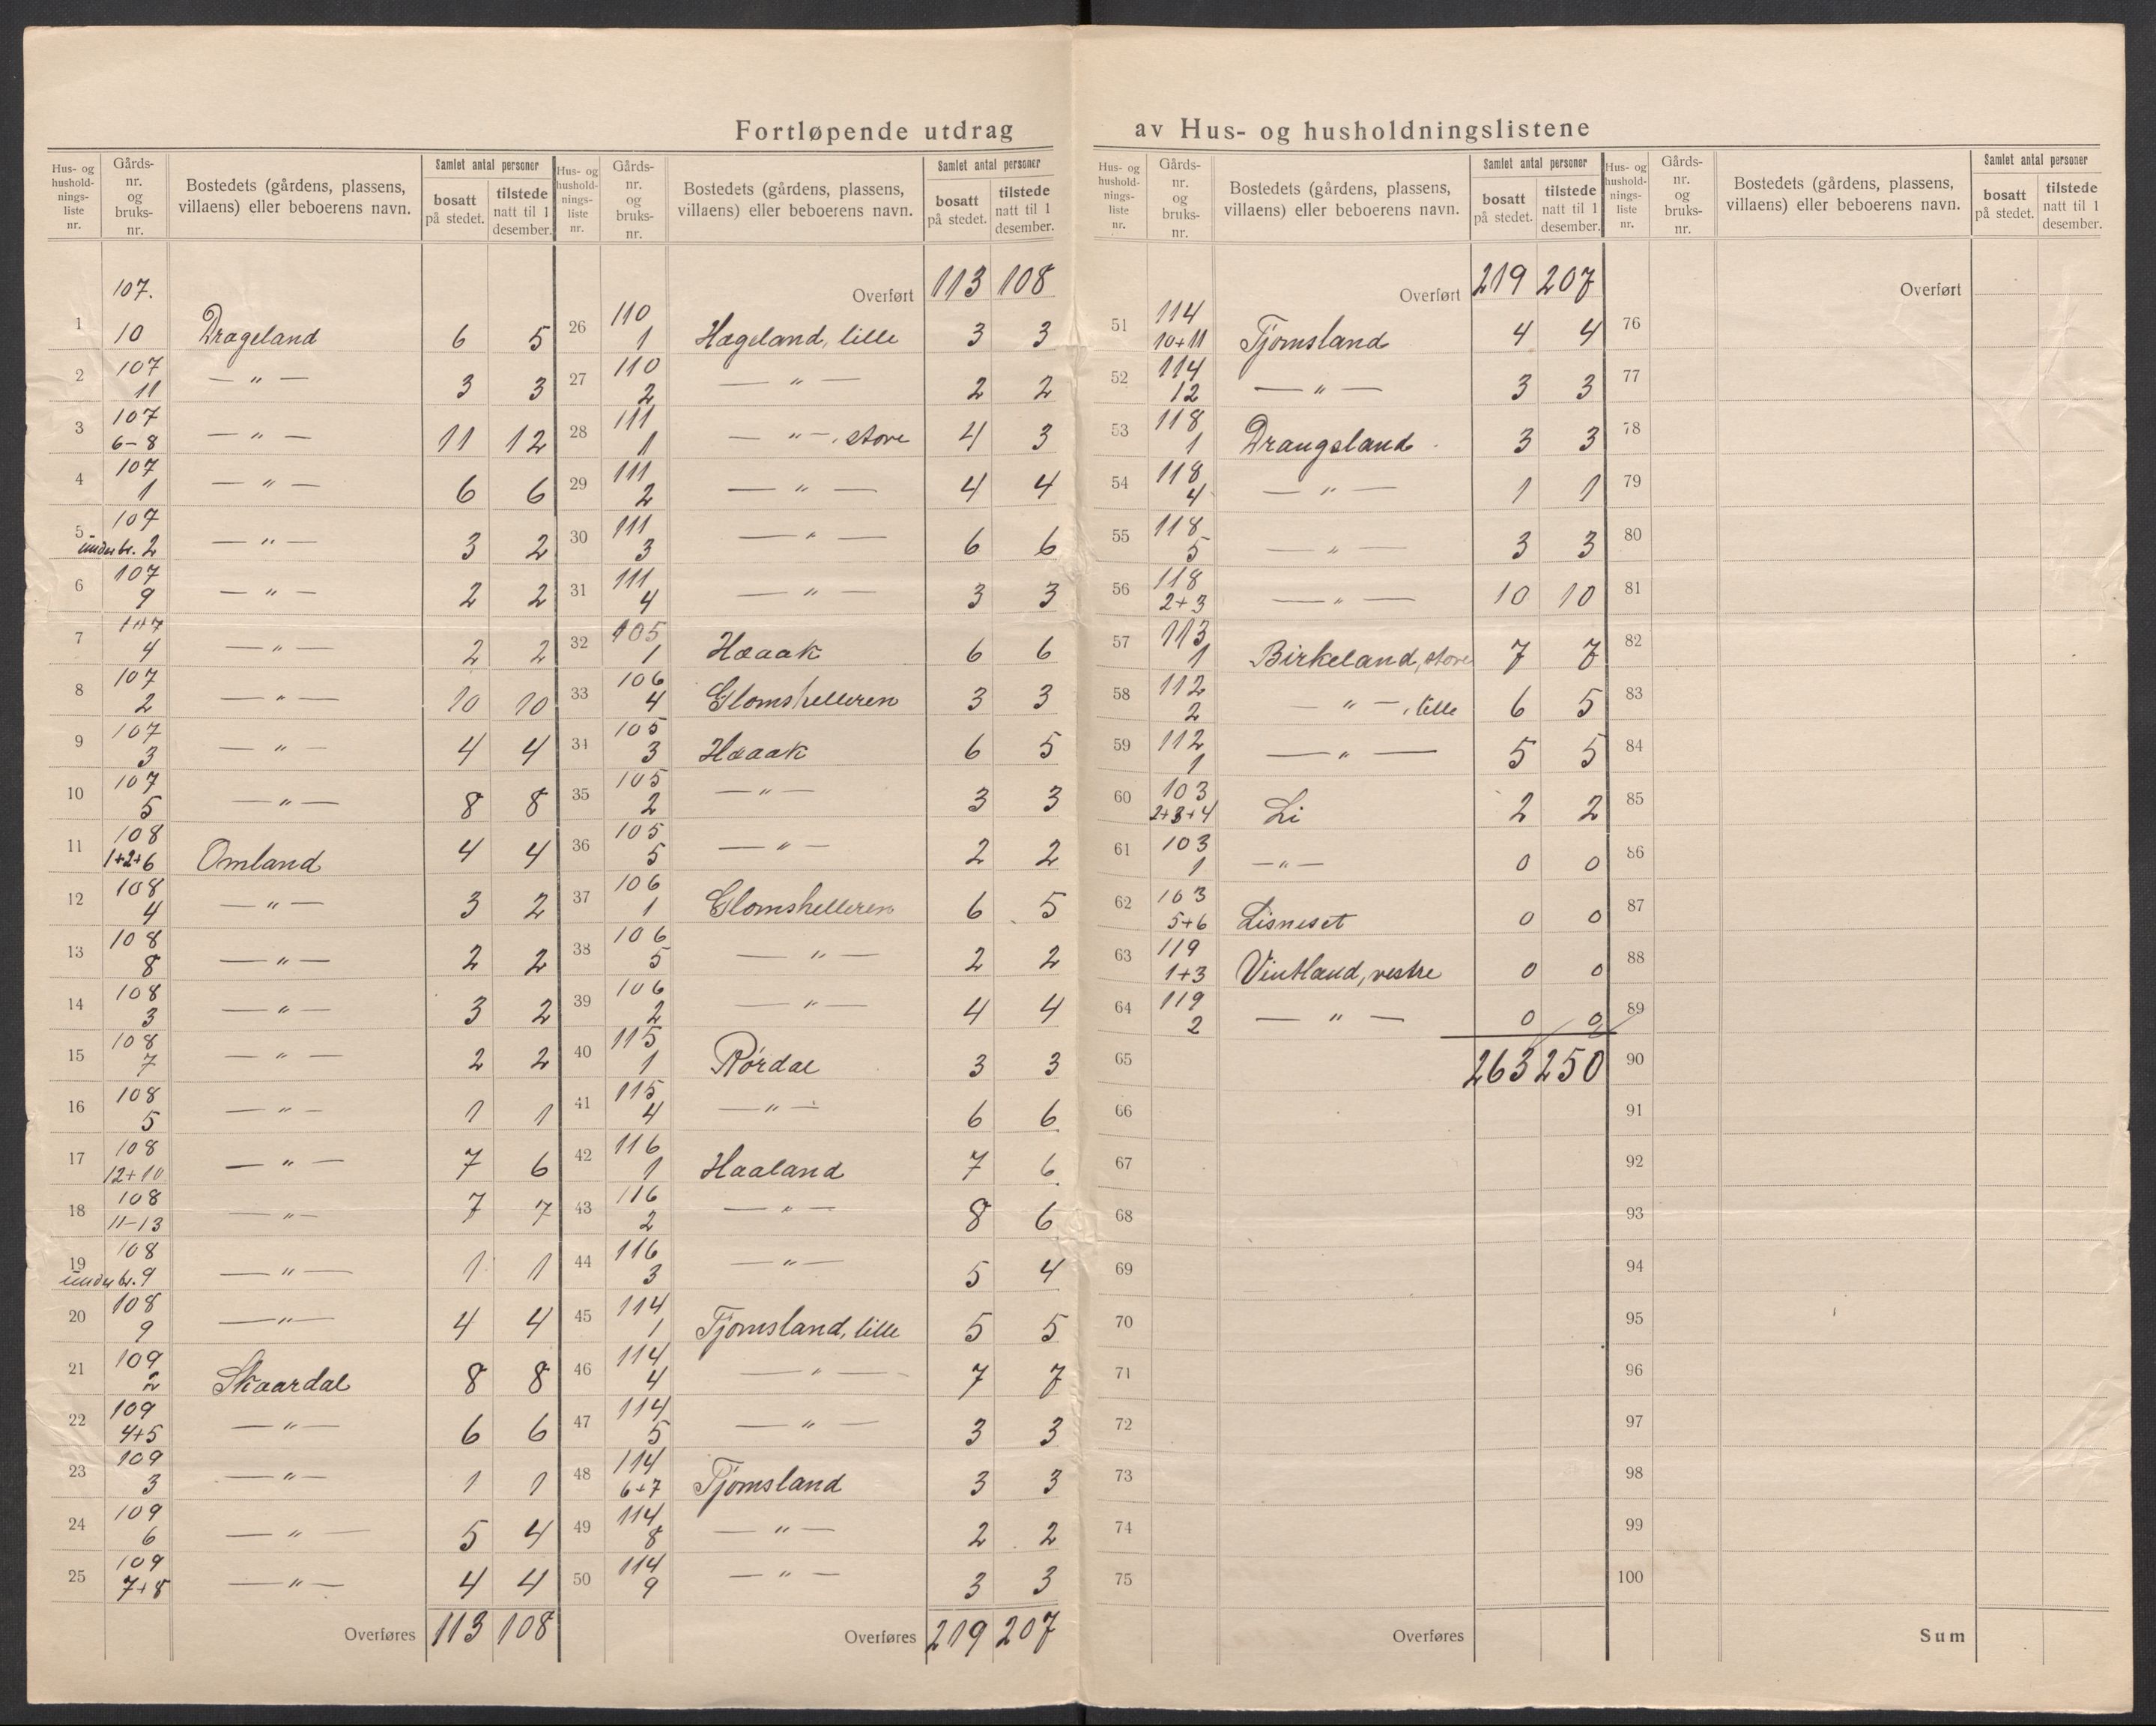 Fortløpende utdrag av Hus- og husholdningslistene
Hus- og husholdnings-liste nr. | Gårds-nr. og bruks-nr. | Bostedets (gårdens, plassens, villaens) eller beboerens navn. | Samlet antal personer bosatt på stedet. | tilstede natt til 1 desember.
1 | 107. 10 | Drageland | 6 | 5
2 | 107 11 | — " — | 3 | 3
3 | 107 6-8 | — " — | 11 | 12
4 | 107 1 | — " — | 6 | 6
5 | 107 under br. 2 | — " — | 3 | 2
6 | 107 9 | — " — | 2 | 2
7 | 107 4 | — " — | 2 | 2
8 | 107 2 | — " — | 10 | 10
9 | 107 3 | — " — | 4 | 4
10 | 107 5 | — " — | 8 | 8
11 | 108 1+2+6 | Omland | 4 | 4
12 | 108 4 | — " — | 3 | 2
13 | 108 8 | — " — | 2 | 2
14 | 108 3 | — " — | 3 | 2
15 | 108 7 | — " — | 2 | 2
16 | 108 5 | — " — | 1 | 1
17 | 108 12+10 | — " — | 7 | 6
18 | 108 11-13 | — " — | 7 | 7
19 | 108 under br. 9 | — " — | 1 | 1
20 | 108 9 | — " — | 4 | 4
21 | 109 2 | Skaardal | 8 | 8
22 | 109 4+5 | — " — | 6 | 6
23 | 109 3 | — " — | 1 | 1
24 | 109 6 | — " — | 5 | 4
25 | 109 7+8 | — " — | 4 | 4
Overføres | 113 | 108
Hus- og husholdnings-liste nr. | Gårds-nr. og bruks-nr. | Bostedets (gårdens, plassens, villaens) eller beboerens navn. | Samlet antal personer bosatt på stedet. | tilstede natt til 1 desember.
Overført | 113 | 108
26 | 110 1 | Hægeland, lille | 3 | 3
27 | 110 2 | — " — | 2 | 2
28 | 111 1 | — " —, store | 4 | 3
29 | 111 2 | — " — | 4 | 4
30 | 111 3 | — " — | 6 | 6
31 | 111 4 | — " — | 3 | 3
32 | 105 1 | Haaak | 6 | 6
33 | 106 4 | Glomshelleren | 3 | 3
34 | 105 3 | Haaak | 6 | 5
35 | 105 2 | — " — | 3 | 3
36 | 105 5 | — " — | 2 | 2
37 | 106 1 | Glomshelleren | 6 | 5
38 | 106 5 | — " — | 2 | 2
39 | 106 2 | — " — | 4 | 4
40 | 115 1 | Rørdal | 3 | 3
41 | 115 4 | — " — | 6 | 6
42 | 116 1 | Haaland | 7 | 6
43 | 116 2 | — " — | 8 | 6
44 | 116 3 | — " — | 5 | 4
45 | 114 1 | Tjomsland, lille | 5 | 5
46 | 114 4 | — " — | 7 | 7
47 | 114 5 | — " — | 3 | 3
48 | 114 6+7 | Tjomsland | 3 | 3
49 | 114 8 | — " — | 2 | 2
50 | 114 9 | — " — | 3 | 3
Overføres | 219 | 207
Hus- og husholdnings-liste nr. | Gårds-nr. og bruks-nr. | Bostedets (gårdens, plassens, villaens) eller beboerens navn. | Samlet antal personer bosatt på stedet. | tilstede natt til 1 desember.
Overført | 219 | 207
51 | 114 10+11 | Tjomsland | 4 | 4
52 | 114 12 | — " — | 3 | 3
53 | 118 1 | Drangsland | 3 | 3
54 | 118 4 | — " — | 1 | 1
55 | 118 5 | — " — | 3 | 3
56 | 118 2+3 | — " — | 10 | 10
57 | 113 1 | Birkeland, store | 7 | 7
58 | 112 2 | — " —, lille | 6 | 5
59 | 112 1 | — " — | 5 | 5
60 | 103 2+3+4 | Li | 2 | 2
61 | 103 1 | — " — | 0 | 0
62 | 103 5+6 | Lisneset | 0 | 0
63 | 119 1+3 | Vintland, vestre | 0 | 0
64 | 119 2 | — " — | 0 | 0
65 | 263 | 250
66
67
68
69
70
71
72
73
74
75
Overføres
Hus- og husholdnings-liste nr. | Gårds-nr. og bruks-nr. | Bostedets (gårdens, plassens, villaens) eller beboerens navn. | Samlet antal personer bosatt på stedet. | tilstede natt til 1 desember.
Overført
76
77
78
79
80
81
82
83
84
85
86
87
88
89
90
91
92
93
94
95
96
97
98
99
100
Sum